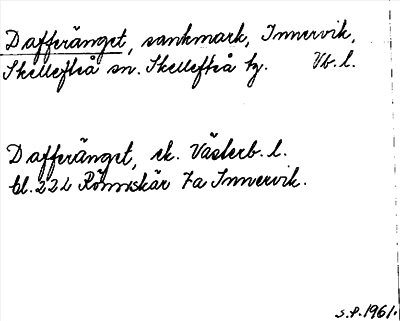 Dafferänget, sankmark, Innervik,
Skellefteå sn. Skellefteå tg. Vb. l.
Dafferänget, ek. Västerb. l.
bl. 22L Rönnskär 7a Innervik.
s.p. 1961.